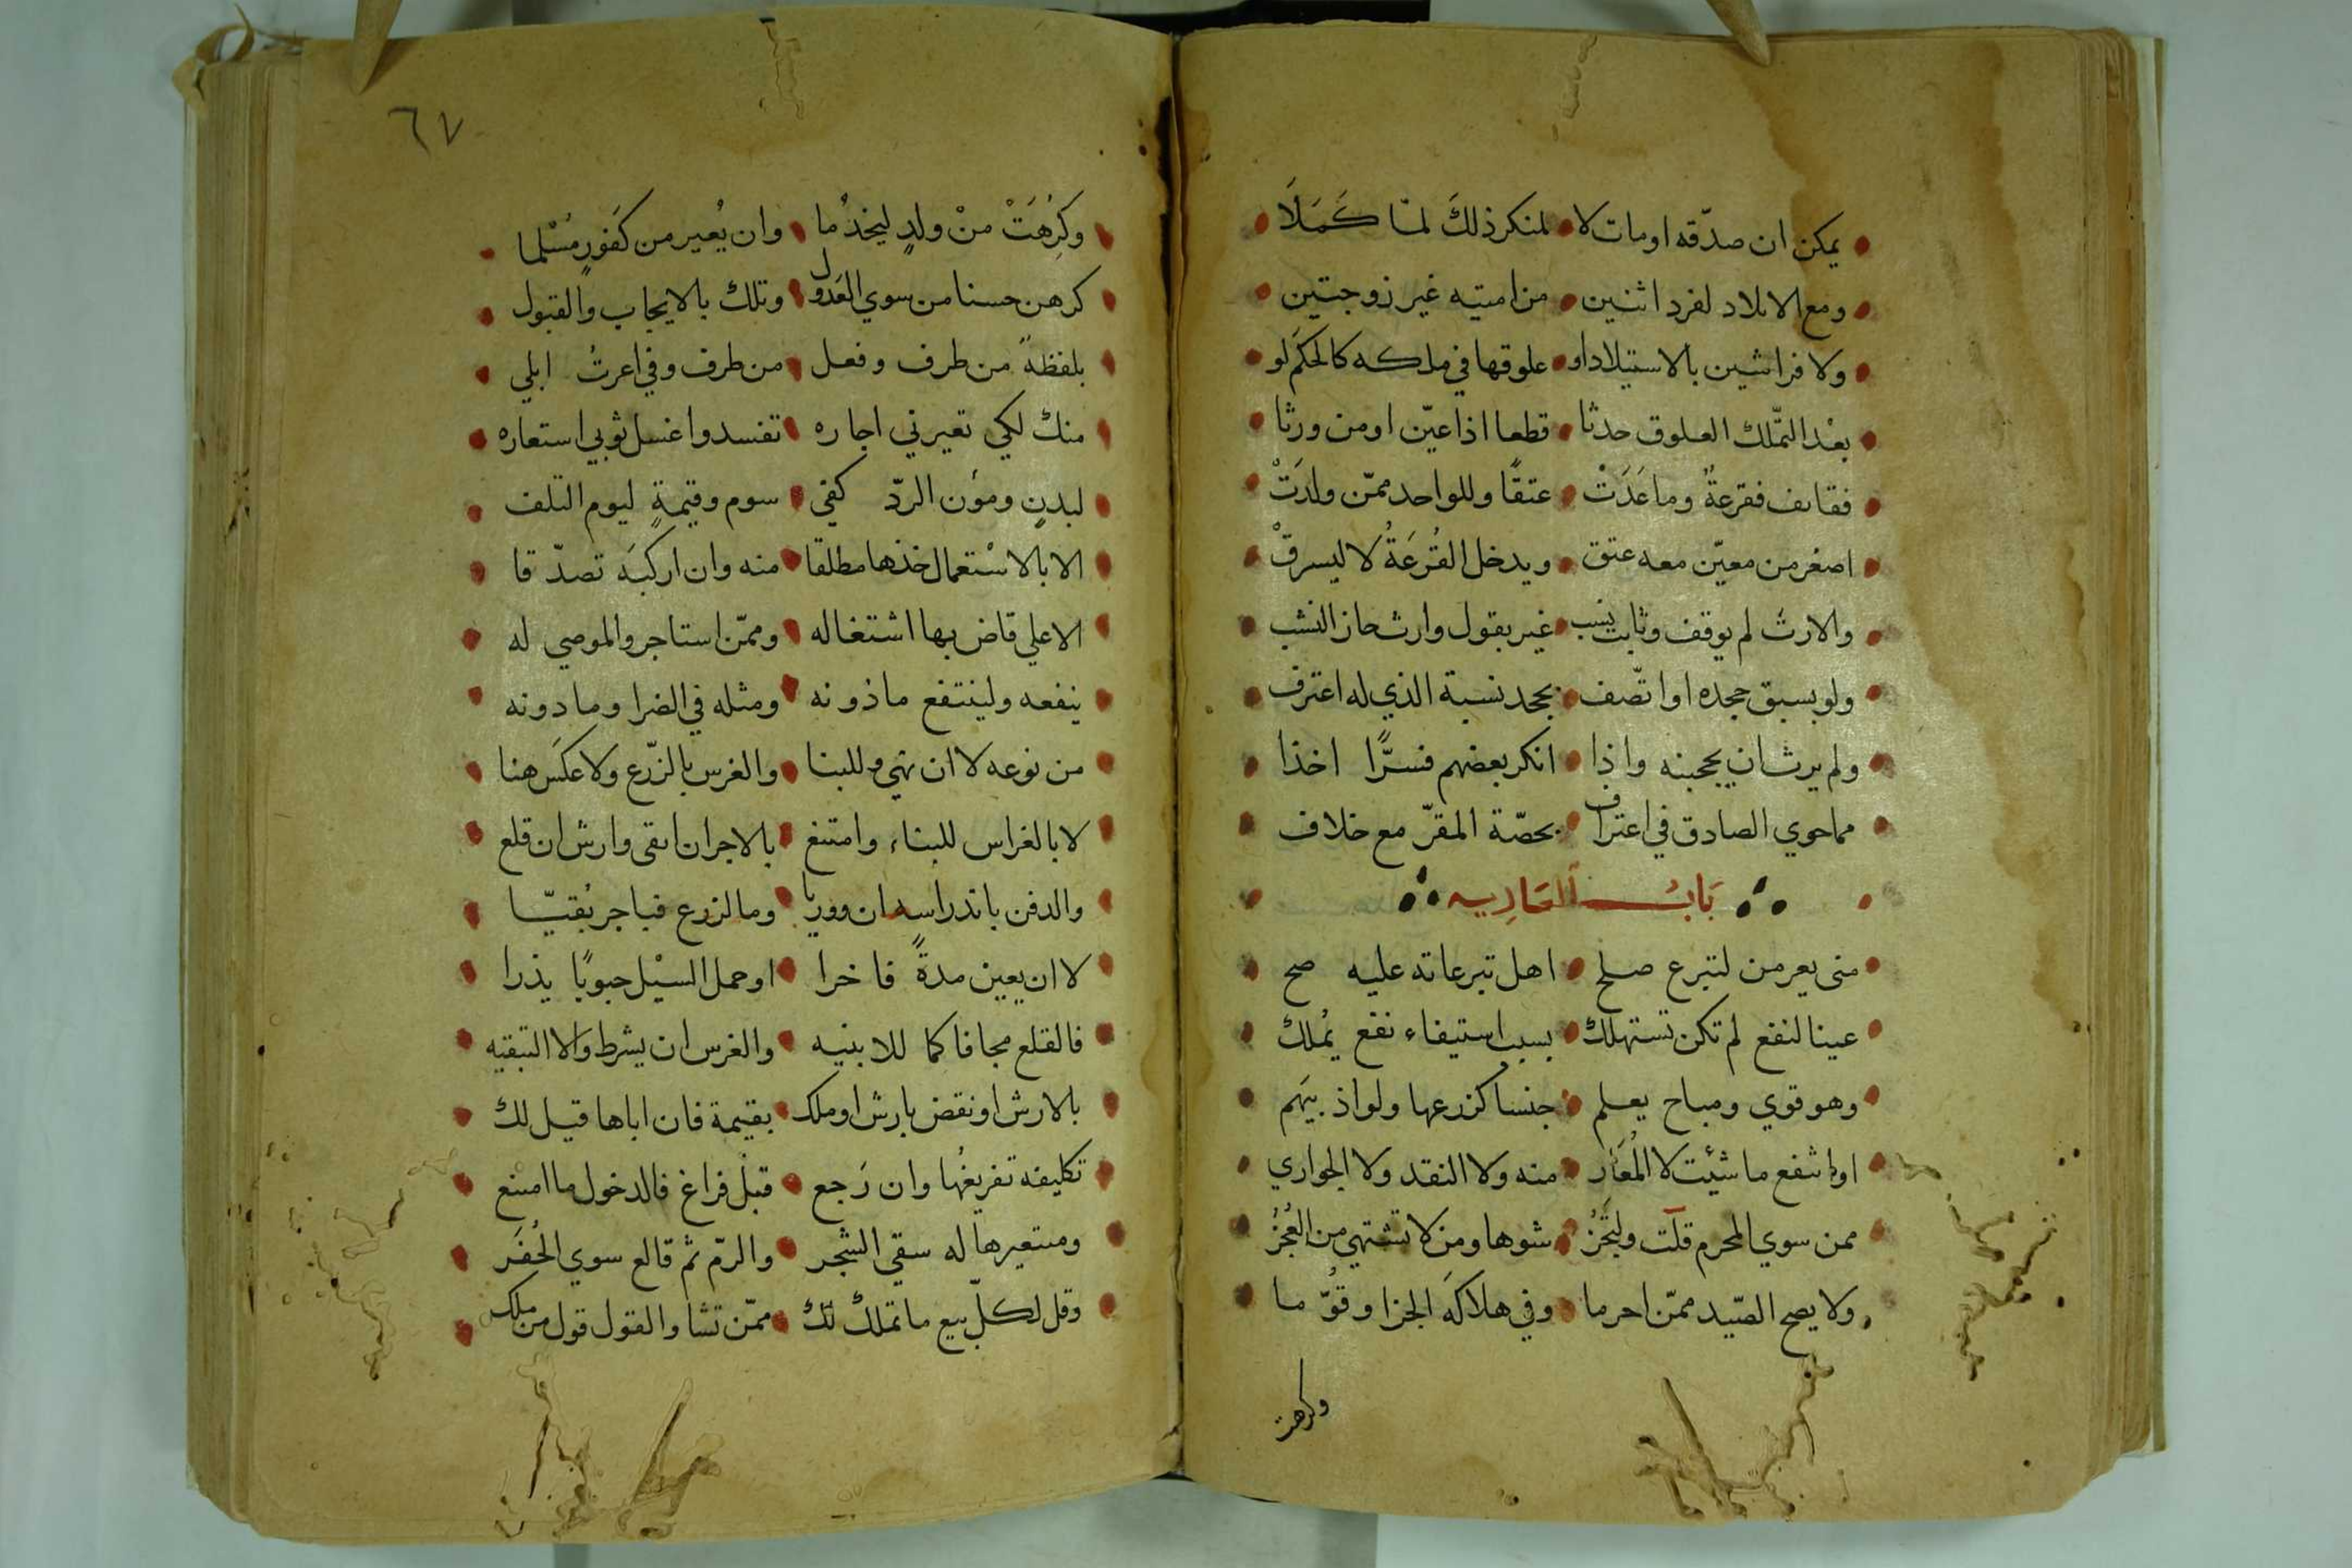 يمكن ان صدّقه اومات لا لمنكر ذلكَ لمّا كَمَلَا
ومع الايلاد لفرد اثنين من امتيه غير زوجتين
ولا فراشين بالاستيلاد او علوقها في ملكه كالحكم لو
بعْد التّملك العلوق حدثا قطعا اذا عيّن اومن ورثا
فقايف فقرعةٌ وما عَدَتْ عتقًا وللواحد ممّن ولدَتْ
اصغر من معيّن معه عتق ويدخل القُرعَةُ لا ليسرقْ
والارث لم يوقف وثابت نسب غير بقول وارث حاز النشب
ولو بسبق جحده او اتّصف بجحد نسبة الذي له اعترف
ولم يرثان يحجبنه واذا انكر بعضهم فسرًّا اخذا
مما حوي الصادق في اعتراف بحصّة المقرّ مع خلاف
بَابُ العَاريه
متى يعر من لتبرع صلح اهل تبرعاته عليه صح
عينا لنفع لم تكن تستهلك بسبب استيفاء نفع يُملك
وهو قوي ومباح يعلم جنسا كزرعها ولو اذ يبهم
اولم اشفع ما شئت لا المُعَار منه ولا النقد ولا الجواري
ممن سوي المحرم قلت وليَجُزْ شوها ومن لا تشتهي من العُجُزْ
ولا يصح الصّيد ممّن احرما وفي هلاكه الجزا وقوّما
وكرهت
٦٧
وكَرُهَتْ منْ ولدٍ ليخدُما وان يُعير من كَفورٍ مُسْلما
كرهن حسنا من سوي العَدول وتلك بالايجاب والقبول
بلفظةٍ من طرف وفعل من طرف وفي اعرتُ ابلي
منك لكي تعيرني اجاره تفسد واغسل ثوبي استعاره
لبدنٍ ومؤن الردّ كفي سوم وقيمةٍ ليوم التلف
الا بالاسْتعمال خذها مطلقا منه وان اركبَه تصدّقا
الا علي قاض بها اشتغاله وممّن استاجر والموصي له
ينفعه ولينتفع ماذونه ومثله في الضرا وما دونه
من نوعه لا ان نهي وللبنا والغرس بالزّرع ولا عكسَ هنا
لا بالغراس للبناء وامتنع بالاجر ان ابقى وارش ان قلع
والدفن باندراسه ان ووريا وما لزرع فباجر بُقّيّا
لا ان يعين مدةً فاخرا او حمل السيْل حبوبًا يذرا
فالقلع مجانا كما للابنيه والغرس ان يشرط والا التبقيه
بالارش او نقض بارش او ملك بقيمة فان اباها قيل لك
تكليفه تفريغُها وان رَجع قبْل فراغ فالدخول ما امتنع
ومستعيرها له سقي الشجر والرّم ثم قالع سوي الحُفَر
وقل لكلّ بيع ما تملك لك ممّن تشا والقول قول من ملك